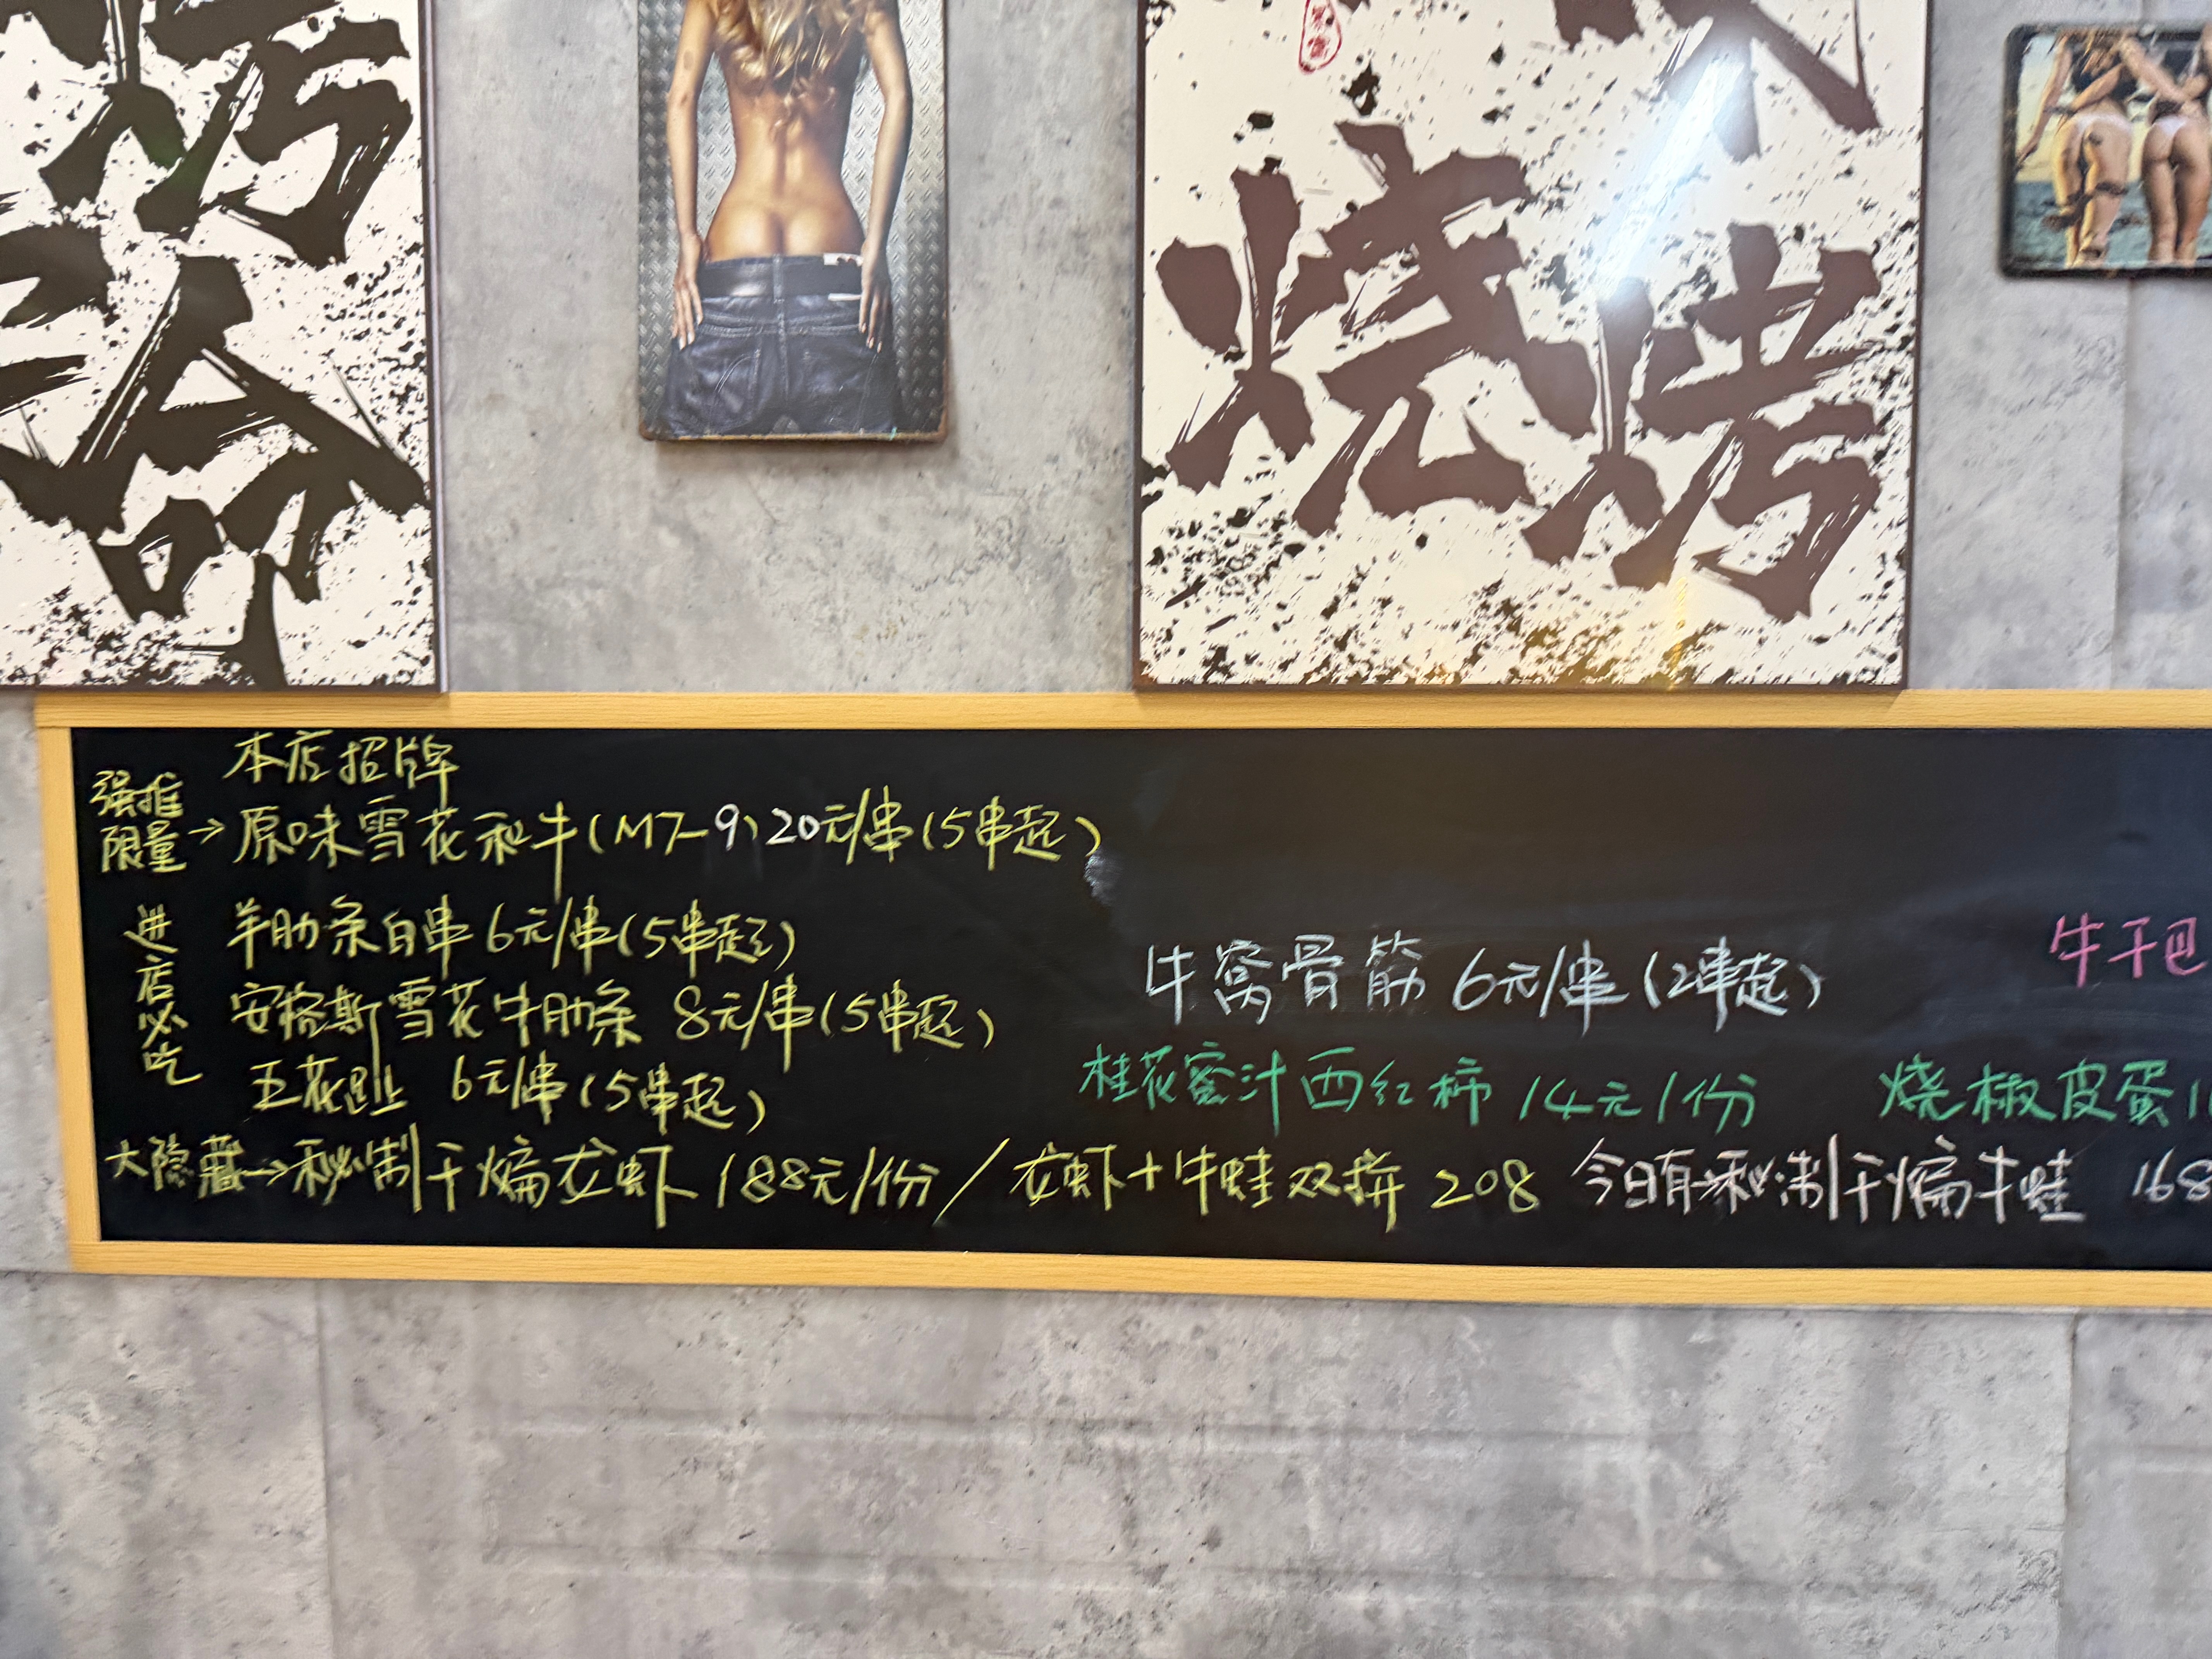 烤
命
烧烤
本店招牌
强推
限量→原味雪花和牛(M7-9)20元/串(5串起)
进店必吃
羊肋条白串 6元/串(5串起)
安格斯雪花牛肋条 8元/串(5串起)
五花趾 6元/串(5串起)
牛窝骨筋 6元/串(2串起)
牛干巴
桂花蜜汁西红柿 14元/份
烧椒皮蛋
大隐藏→秘制干煸龙虾 188元/份/龙虾+牛蛙双拼 208 今日有秘制干煸牛蛙 168